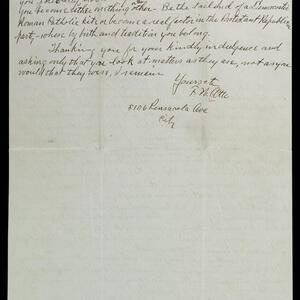 you
you become either one thing or other - Be the tail end of a Democratic
Roman Catholic kite or become a real factor in the Protestant Republican
party - where by birth and tradition you belong.
Thanking you for your kindly indulgence and
asking only that you look at matters as they are, not as you
would that they were, I remain
Yours et
F. W.
5106 Pensacola Ave
City